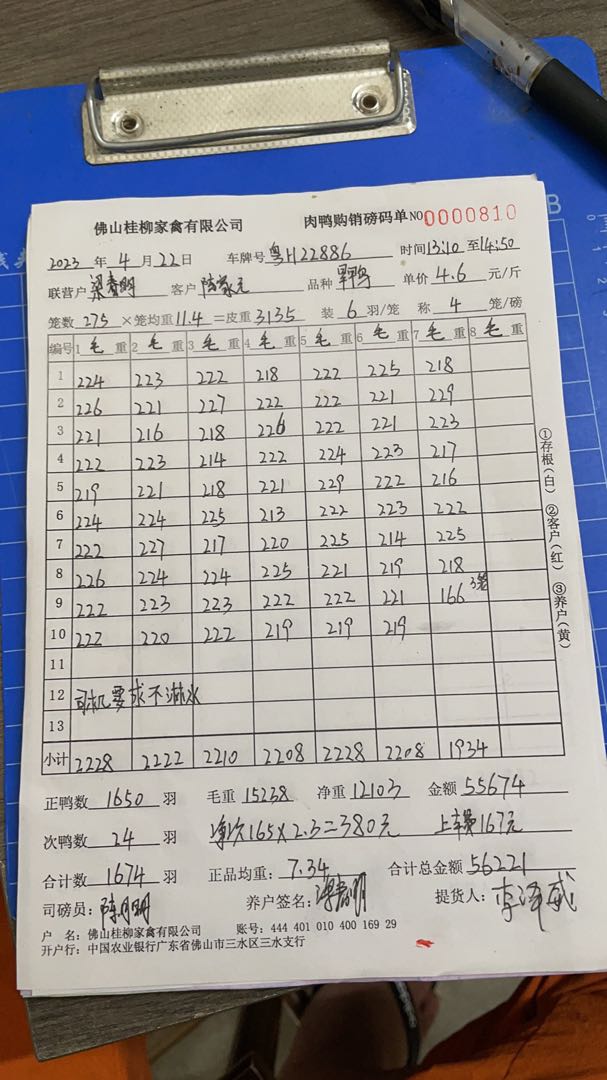 佛山桂柳家禽有限公司 肉鸭购销磅码单 NO 0000810
2023 年 4 月 22 日 车牌号 粤H22886 时间 13:10 至 14:50
联营户 梁春明 客户 品种 单价 4.6 元/斤
笼数 275 ×笼均重 11.4 =皮重 3135 装 6 羽/笼 称 4 笼/磅
编号 1 毛 重 2 毛 重 3 毛 重 4 毛 重 5 毛 重 6 毛 重 7 毛 重 8 毛 重
1 224 223 222 218 222 225 218
2 226 221 227 222 222 221 229
3 221 216 218 226 222 221 223
4 222 223 214 222 224 223 217
5 219 221 218 221 229 222 216
6 224 224 225 213 222 223 222
7 222 227 217 220 225 214 225
8 226 224 224 225 221 219 218
9 222 223 223 222 222 221 166 3笼
10 222 220 222 219 219 219
11
12 司机要求不淋水
13
小计 2228 2222 2210 2208 2228 2208 1934
正鸭数 1650 羽 毛重 15238 净重 12103 金额 55674
次鸭数 24 羽 净次165×2.3=380元 上车费167元
合计数 1674 羽 正品均重: 7.34 合计总金额 56221
司磅员: 养户签名: 梁春明 提货人:
户 名: 佛山桂柳家禽有限公司 账号: 444 401 010 400 169 29
开户行: 中国农业银行广东省佛山市三水区三水支行
①存根(白) ②客户(红) ③养户(黄)